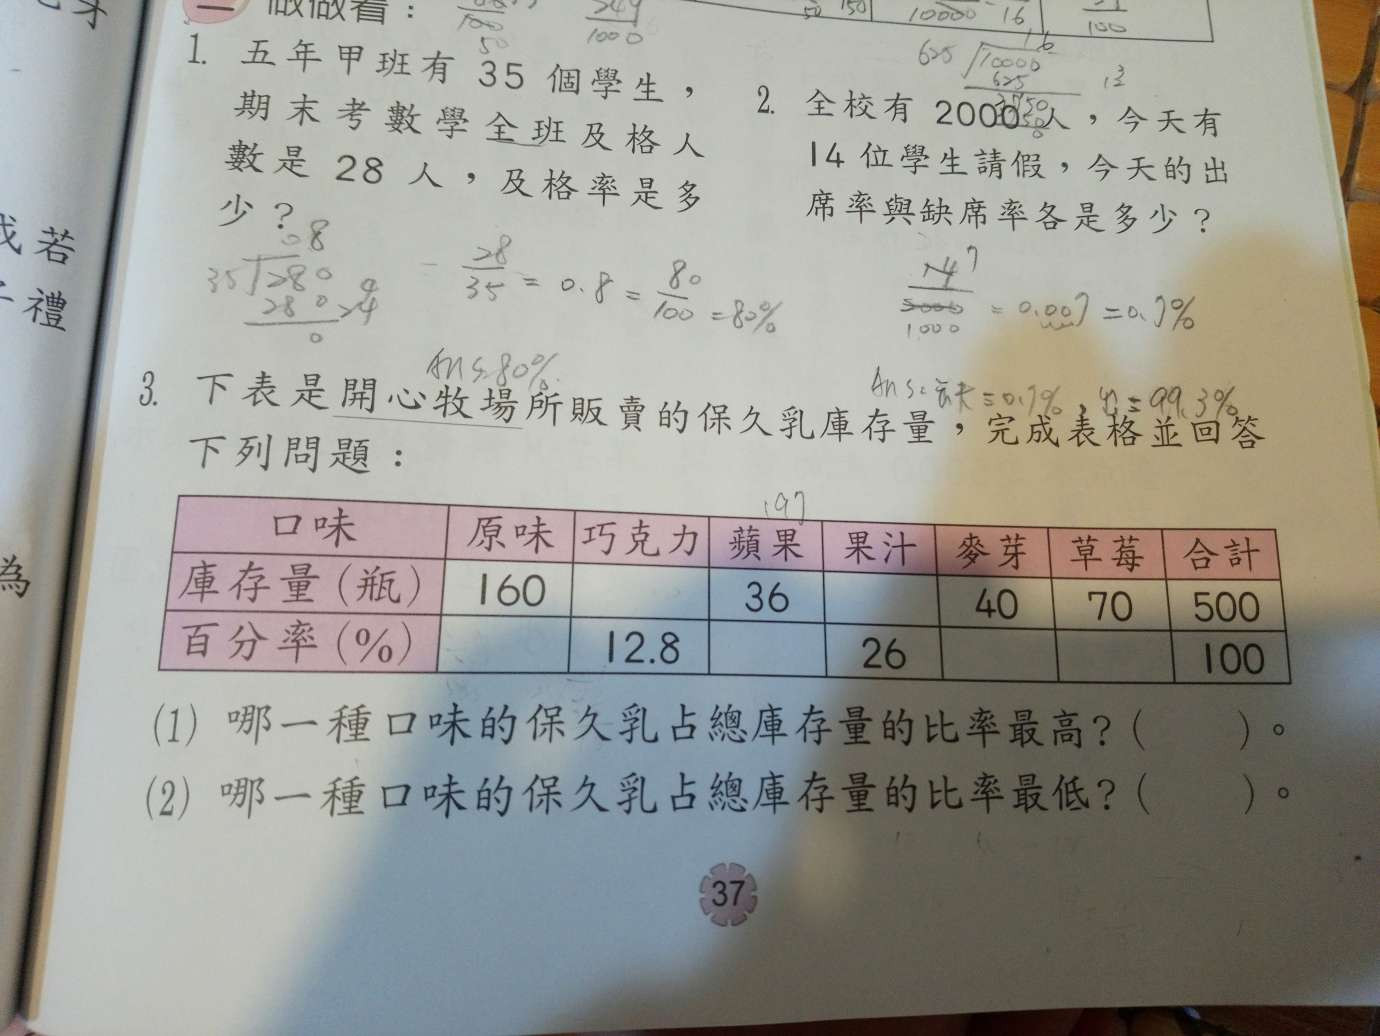 做做看：
1. 五年甲班有 35 個學生，
期末考數學全班及格人
數是 28 人，及格率是多
少？
2. 全校有 2000 人，今天有
14 位學生請假，今天的出
席率與缺席率各是多少？
28/35 = 0.8 = 80/100 = 80%
Ans: 80%
= 0.007 = 0.7%
3. 下表是開心牧場所販賣的保久乳庫存量，完成表格並回答
下列問題：
口味 原味 巧克力 蘋果 果汁 麥芽 草莓 合計
庫存量(瓶) 160 36 40 70 500
百分率(%) 12.8 26 100
(1) 哪一種口味的保久乳占總庫存量的比率最高？( )。
(2) 哪一種口味的保久乳占總庫存量的比率最低？( )。
37